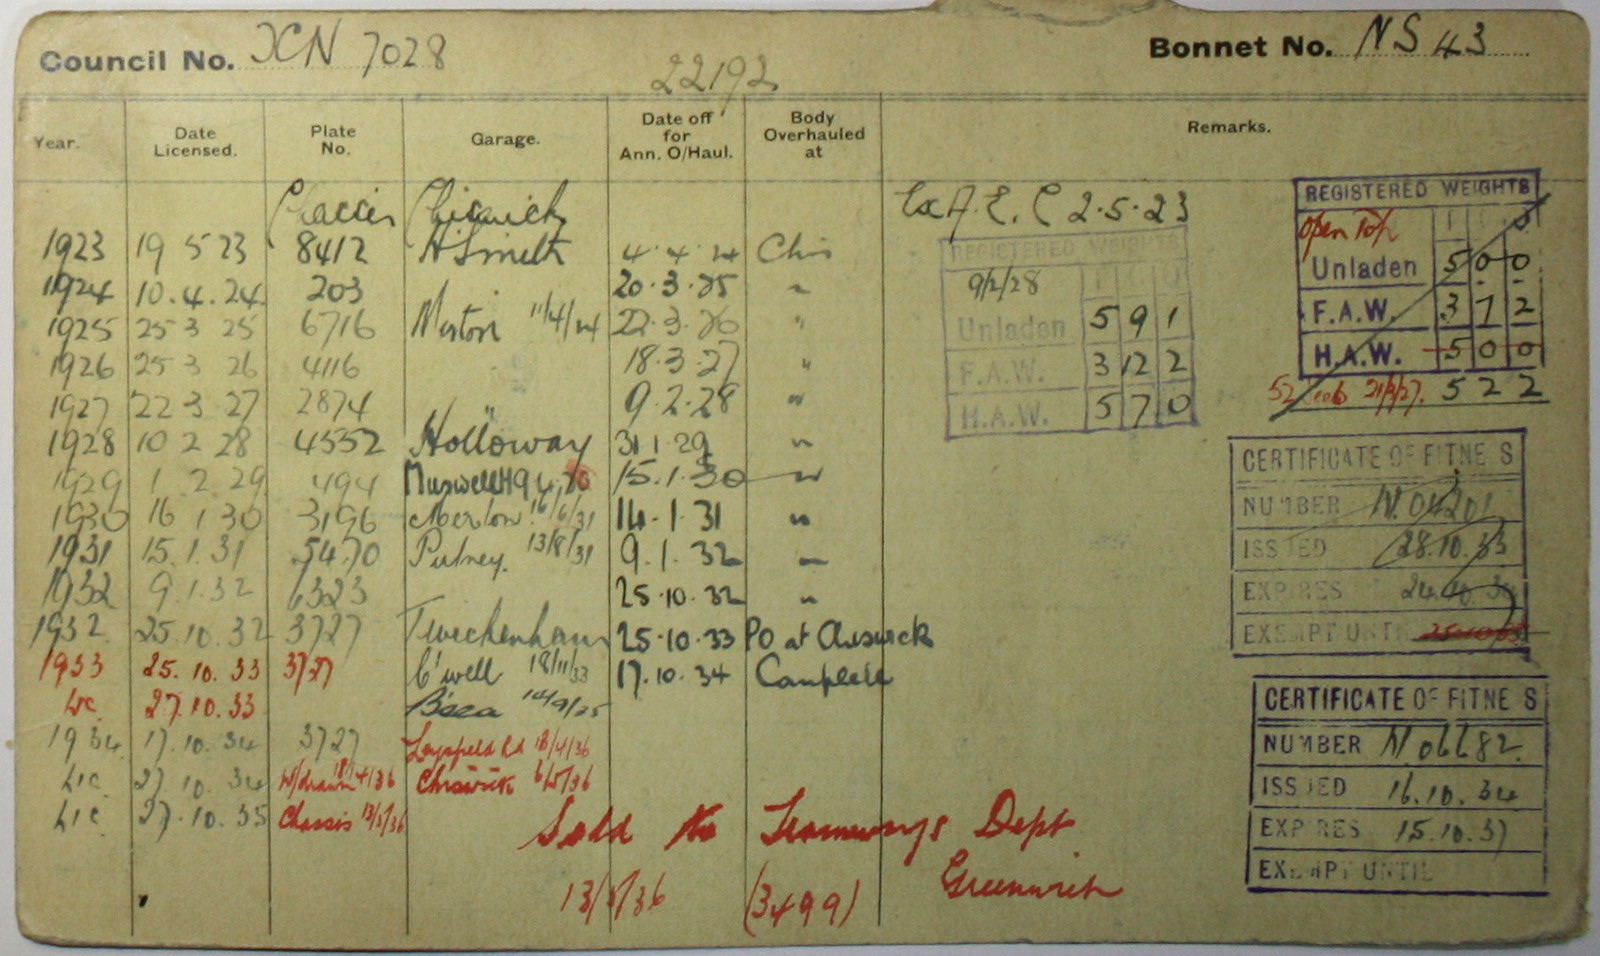 Council No. XN 7028 Bonnet No. NS 43
22192
Year. Date Licensed. Plate No. Garage. Date off for Ann. O/Haul. Body Overhauled at Remarks.
Chassis Chiswick Ex A. E. C 2.5.23
1923 19 5 23 8412 H Smith 4.4.24 Chis
1924 10.4.24 203 20.3.25 "
1925 25 3 25 6716 Merton 11/4/24 22.3.26 "
1926 25 3 26 4116 18.3.27 "
1927 22 3 27 2874 " 9.2.28 "
1928 10 2 28 4552 Holloway 31 1.29 "
1929 1 2 29 494 Muswell H 15.1.30 "
1930 16 1 30 3196 Merton 16/6/31 14.1.31 "
1931 15.1.31 5470 Putney. 13/8/31 9.1.32 "
1932 9.1.32 6323 25.10.32 "
1932 25.10.32 3727 Twickenham 25.10.33 PO at Chiswick
1933 25.10.33 3727 C'well 18/11/33 17.10.34 Complete
Lic. 27.10.33
1934 17.10.34 3727 18/4/36
Lic. 27.10.34 W/drawn 18/4/36 Chiswick 6/5/36
Lic 27.10.35 Chassis 13/5/36
Sold to Tramways Dept
Greenwich
13/5/36 (3499)
REGISTERED WEIGHTS
9/2/28
Unladen 5 9 1
F.A.W. 3 12 2
H.A.W. 5 7 0
REGISTERED WEIGHTS
Open Top
Unladen 5 0 0
F.A.W. 3 7 2
H.A.W. 5 0 0
52 Seats 21/3/27. 5 2 2
CERTIFICATE OF FITNE S
NUMBER N.04201
ISS ED 28.10.33
EXP RES 24.10.34
EXE PT UNTI 25.10.33
CERTIFICATE OF FITNE S
NUMBER N.06682
ISS ED 16.10.34
EXP RES 15.10.37
EXEMPT UNTIL